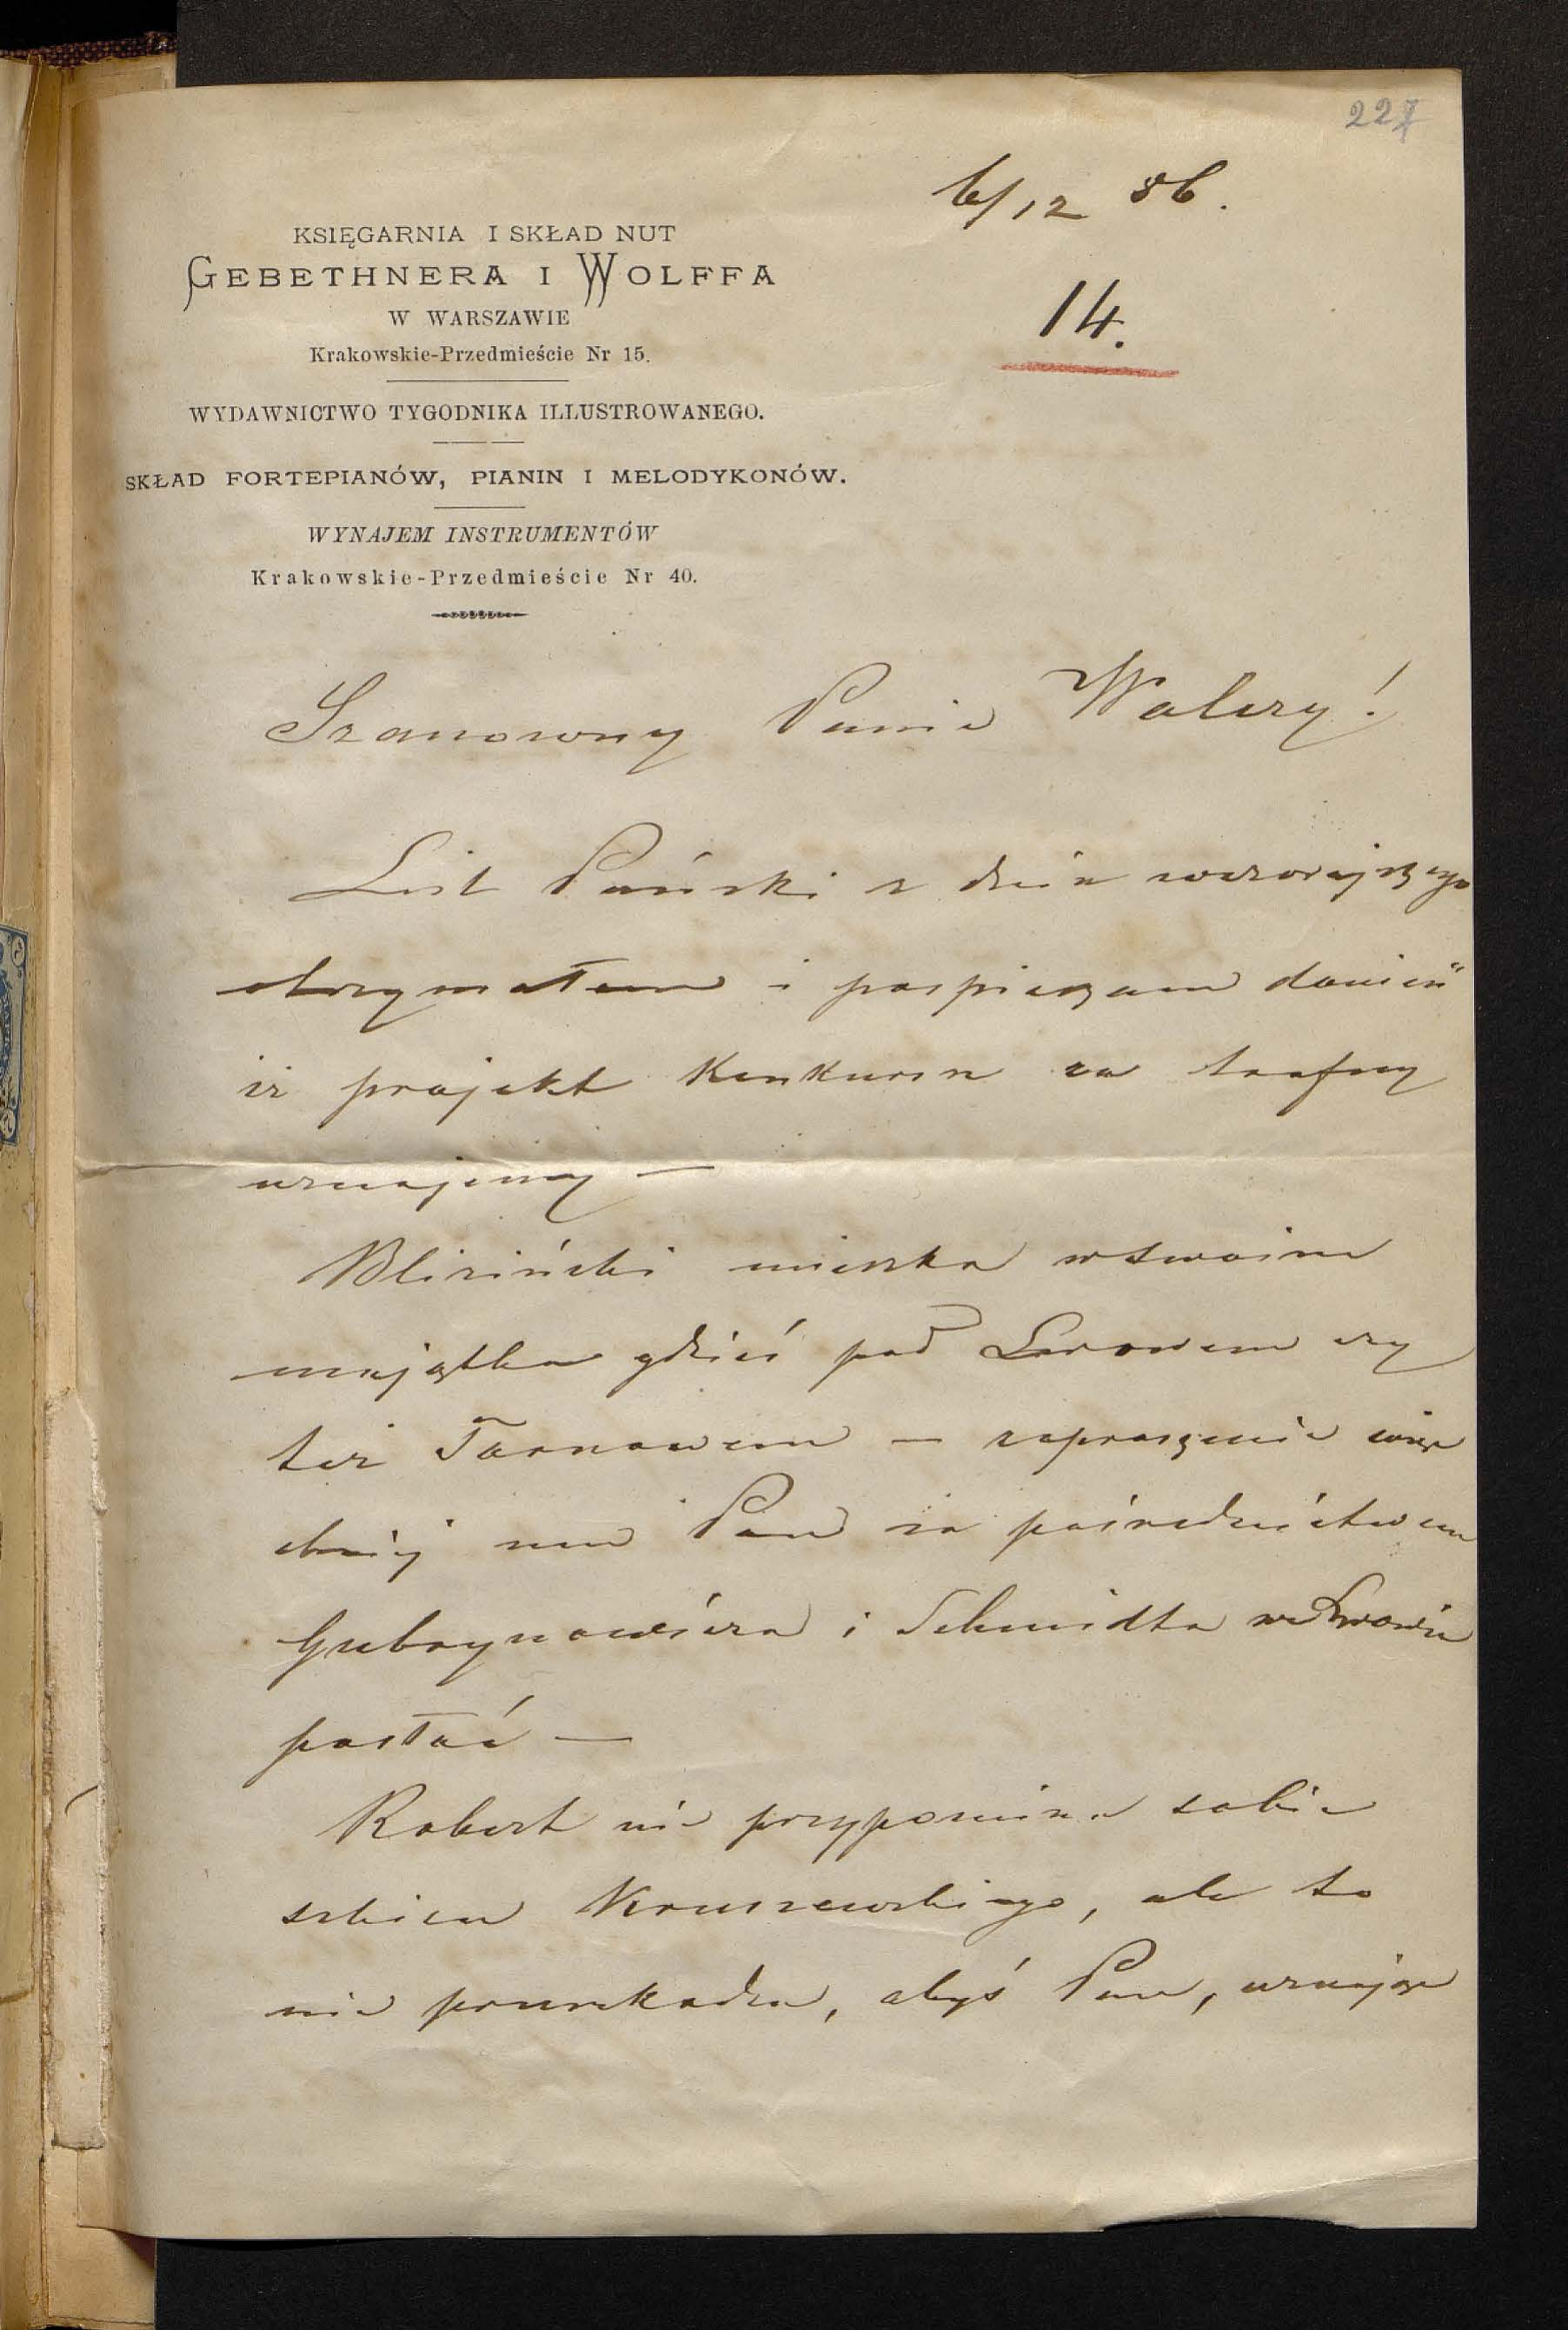 227
6/12 86.
KSIĘGARNIA I SKŁAD NUT
GEBETHNERA I WOLFFA
W WARSZAWIE
Krakowskie-Przedmieście Nr 15.
14.
WYDAWNICTWO TYGODNIKA ILLUSTROWANEGO.
SKŁAD FORTEPIANÓW, PIANIN I MELODYKONÓW.
WYNAJEM INSTRUMENTÓW
Krakowskie-Przedmieście Nr 40.
Szanowny Panie Walery!
List Pański z dnia wczorajszego
otrzymałem i pospieszam donieść
iż projekt Konkursu za trafny
uznajemy —
Bliziński mieszka w swoim
majątku gdzieś pod Lwowem czy
też Tarnowem — zaproszenie więc
chciej mu Pan za pośrednictwem
Gubrynowicza i Schmidta we Lwowie
posłać —
Robert nie przypomina sobie
szkicu Kruszewskiego, ale to
nie przeszkadza, abyś Pan, uznając